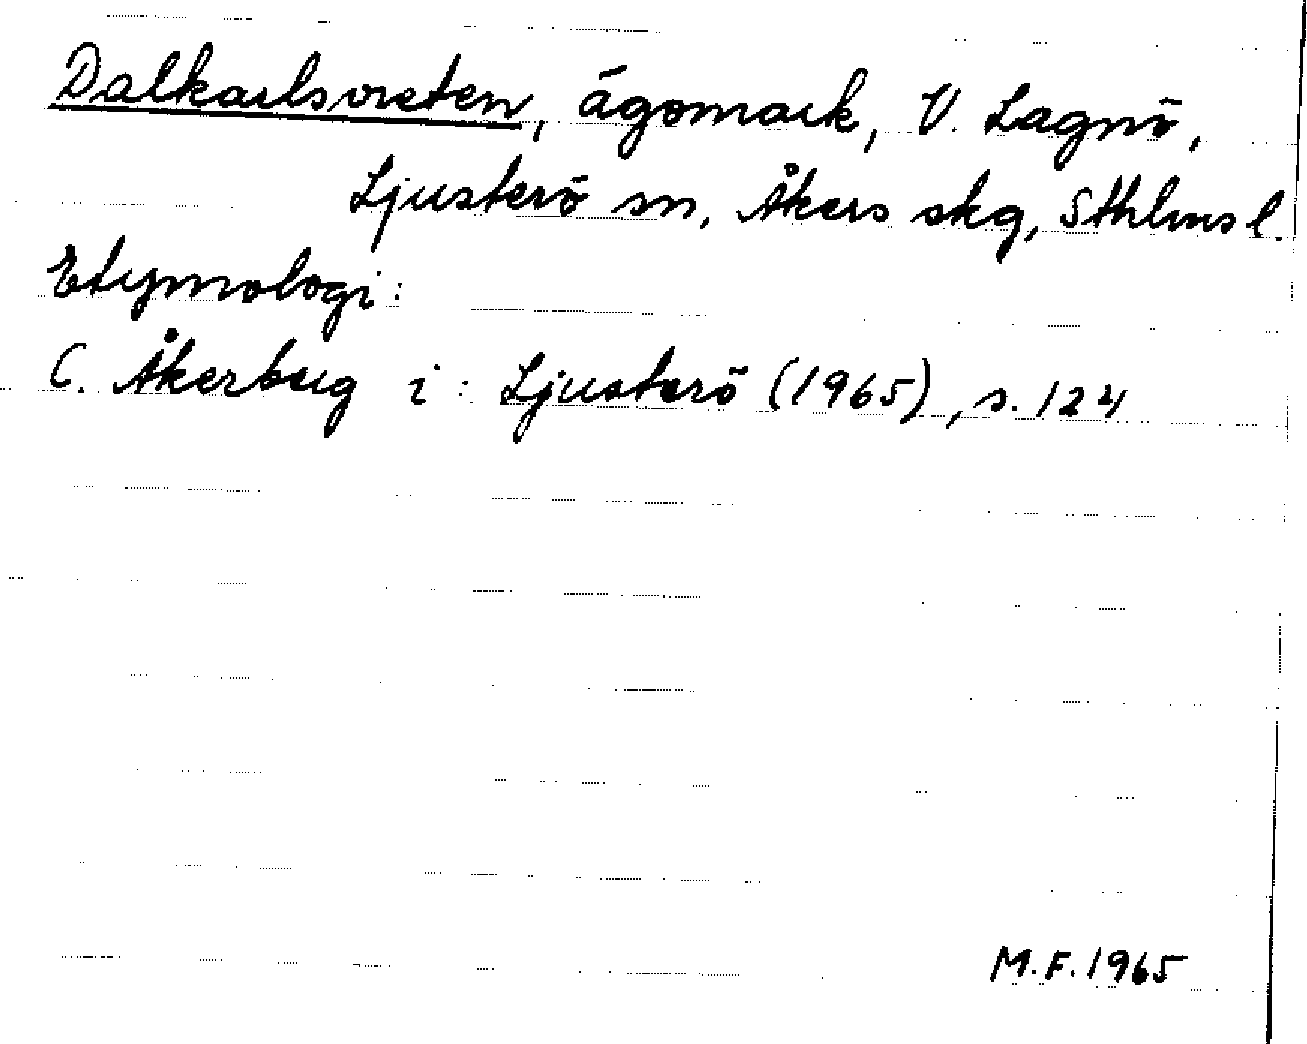 Dalkarlsvreten, ägomark, V. Lagnö,
Ljusterö sn, Åkers skg, Sthlms l.
Etymologi:
C. Åkerberg i: Ljusterö (1965), s. 124
M.F. 1965